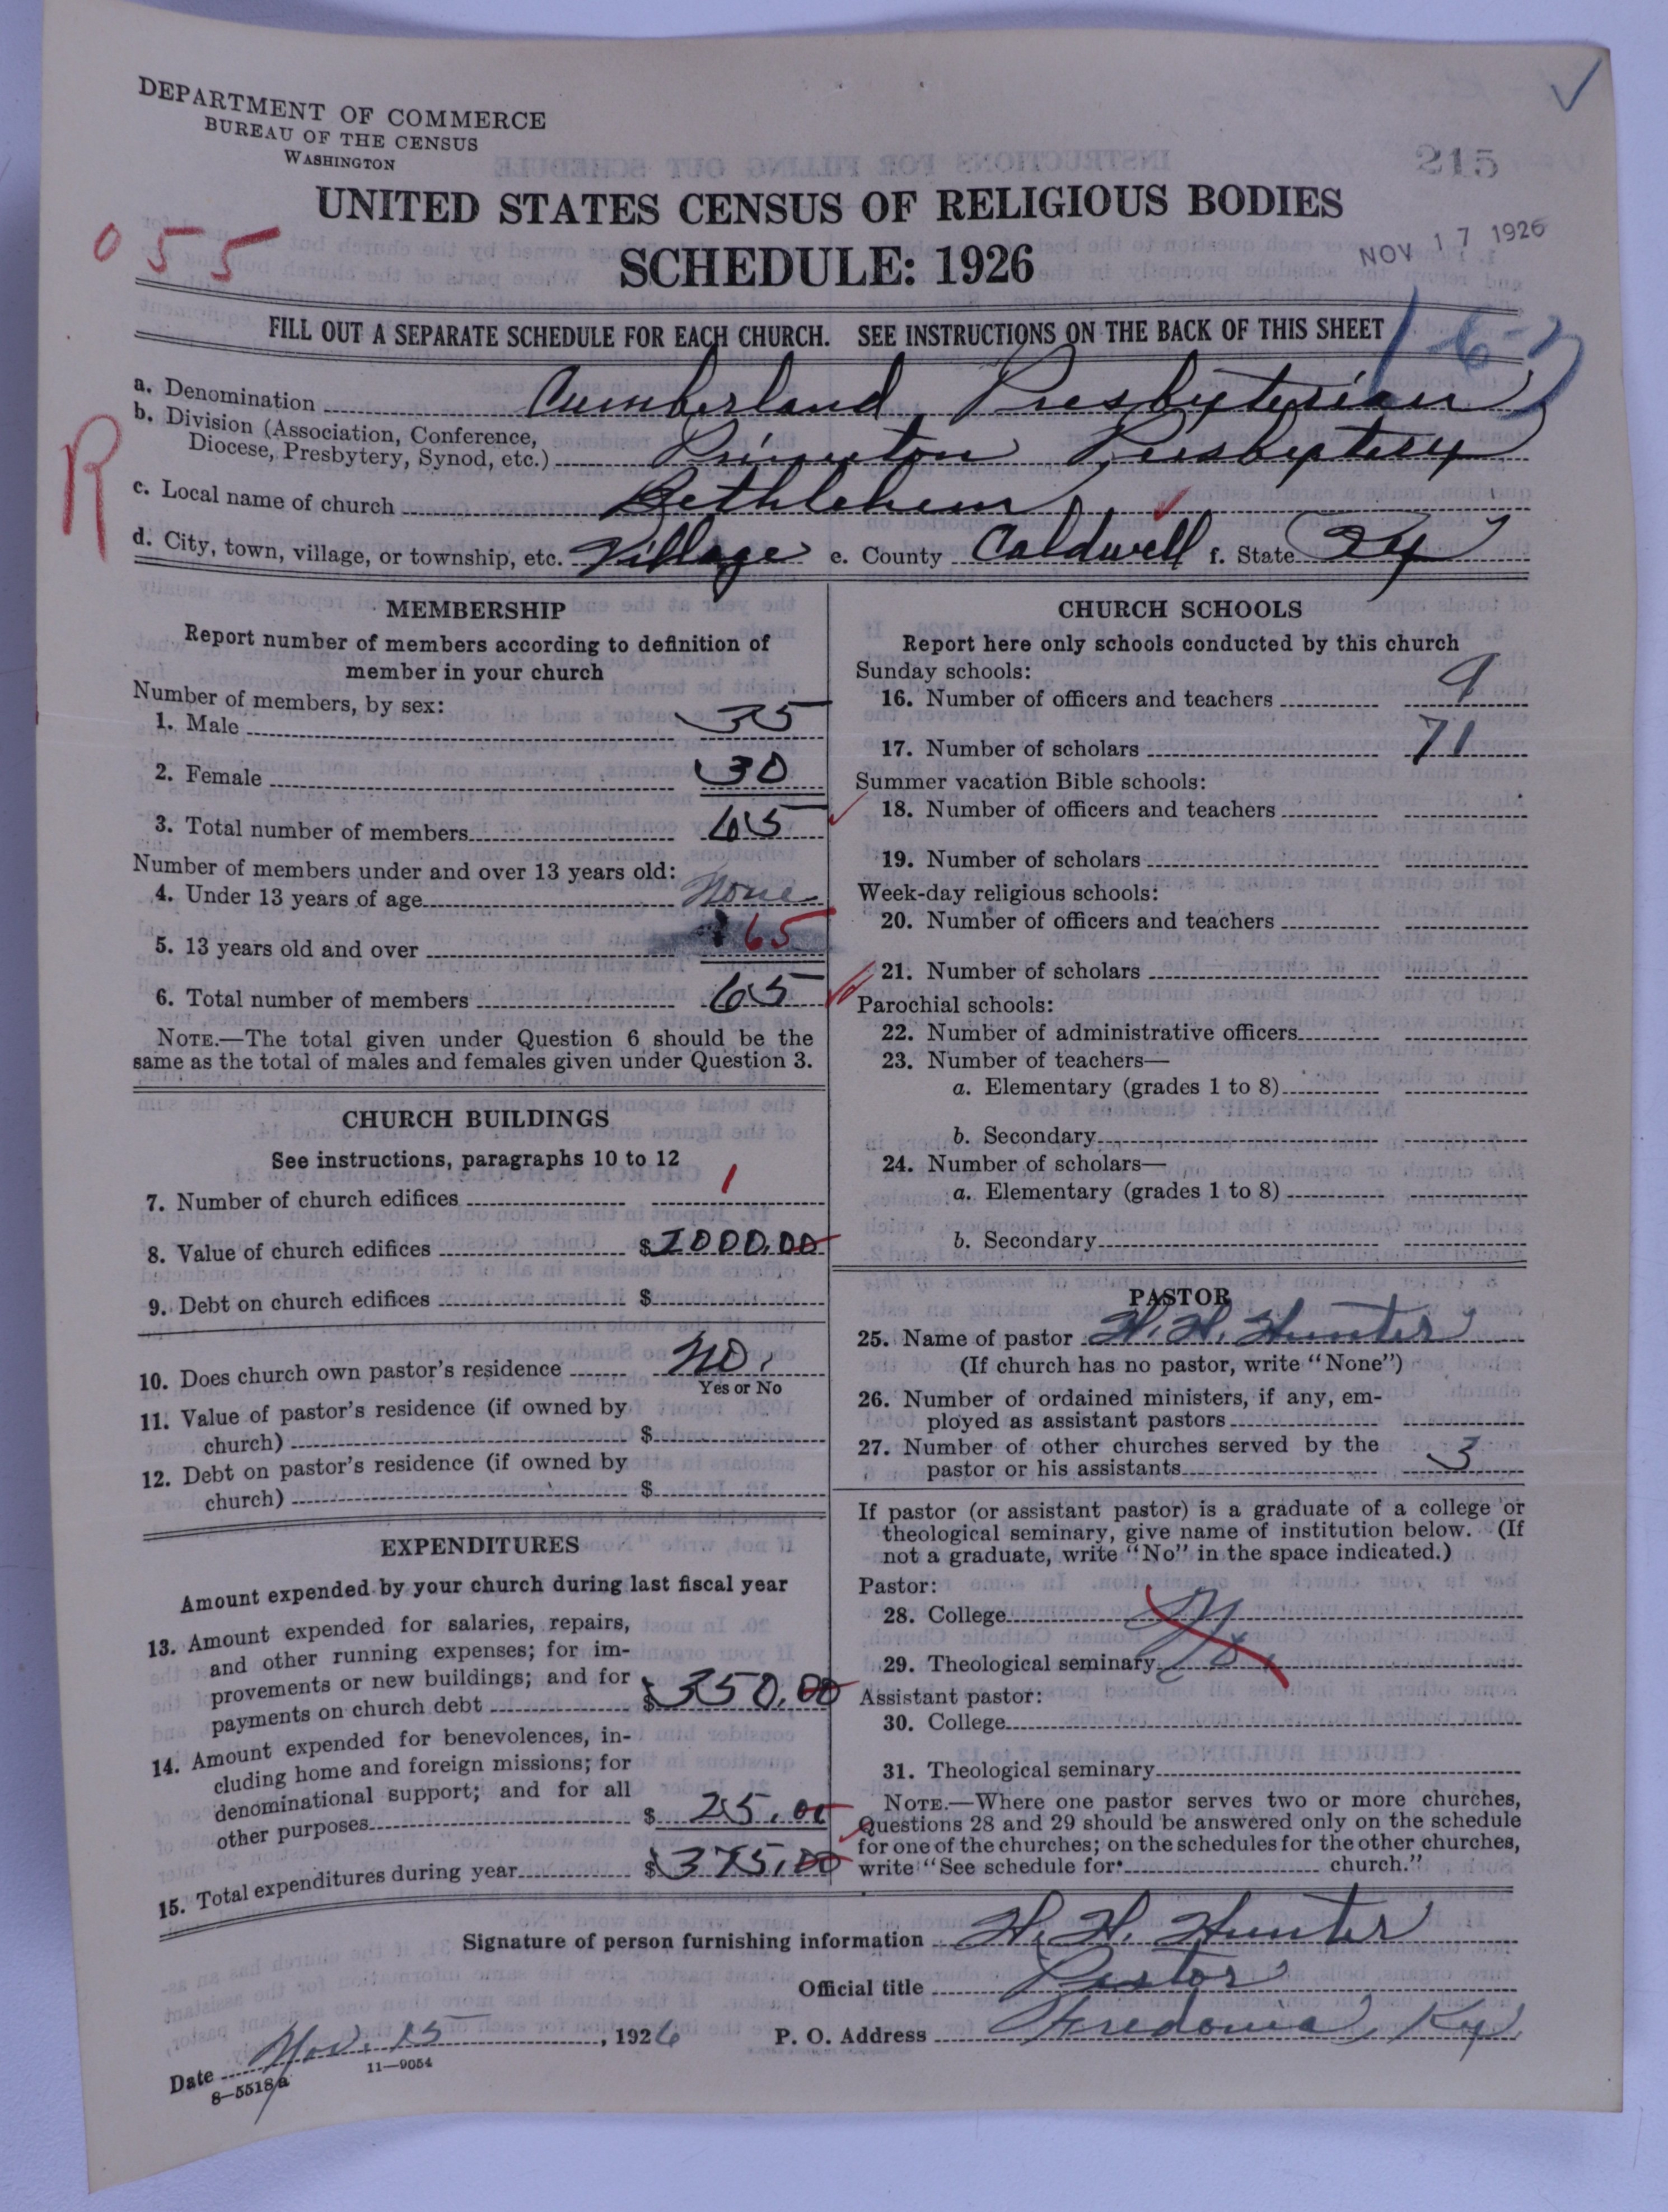 DEPARTMENT OF COMMERCE
BUREAU OF THE CENSUS
WASHINGTON
215
UNITED STATES CENSUS OF RELIGIOUS BODIES
SCHEDULE: 1926
NOV 17 1926
055
FILL OUT A SEPARATE SCHEDULE FOR EACH CHURCH. SEE INSTRUCTIONS ON THE BACK OF THIS SHEET
R
a. Denomination Cumberland Presbyterian
b. Division (Association, Conference,
Diocese, Presbytery, Synod, etc.) Princeton Presbytery
c. Local name of church Bethlehem
d. City, town, village, or township, etc. Village e. County Caldwell f. State Ky
MEMBERSHIP
Report number of members according to definition of
member in your church
Number of members, by sex:
1. Male 35
2. Female 30
3. Total number of members 65
Number of members under and over 13 years old:
4. Under 13 years of age None
5. 13 years old and over 65
6. Total number of members 65
NOTE.—The total given under Question 6 should be the
same as the total of males and females given under Question 3.
CHURCH BUILDINGS
See instructions, paragraphs 10 to 12
7. Number of church edifices 1
8. Value of church edifices $1000.00
9. Debt on church edifices $
10. Does church own pastor's residence No.
Yes or No
11. Value of pastor's residence (if owned by
church) $
12. Debt on pastor's residence (if owned by
church) $
EXPENDITURES
Amount expended by your church during last fiscal year
13. Amount expended for salaries, repairs,
and other running expenses; for im-
provements or new buildings; and for
payments on church debt $350.00
14. Amount expended for benevolences, in-
cluding home and foreign missions; for
denominational support; and for all
other purposes $25.00
15. Total expenditures during year $375.00
CHURCH SCHOOLS
Report here only schools conducted by this church
Sunday schools:
16. Number of officers and teachers 9
17. Number of scholars 71
Summer vacation Bible schools:
18. Number of officers and teachers
19. Number of scholars
Week-day religious schools:
20. Number of officers and teachers
21. Number of scholars
Parochial schools:
22. Number of administrative officers
23. Number of teachers—
a. Elementary (grades 1 to 8)
b. Secondary
24. Number of scholars—
a. Elementary (grades 1 to 8)
b. Secondary
PASTOR
25. Name of pastor H. H. Hunter
(If church has no pastor, write "None")
26. Number of ordained ministers, if any, em-
ployed as assistant pastors
27. Number of other churches served by the
pastor or his assistants 3
If pastor (or assistant pastor) is a graduate of a college or
theological seminary, give name of institution below. (If
not a graduate, write "No" in the space indicated.)
Pastor:
28. College No.
29. Theological seminary
Assistant pastor:
30. College
31. Theological seminary
NOTE.—Where one pastor serves two or more churches,
Questions 28 and 29 should be answered only on the schedule
for one of the churches; on the schedules for the other churches,
write "See schedule for* church."
Signature of person furnishing information H. H. Hunter
Official title Pastor
Date Nov. 15, 1926 P. O. Address Fredonia, Ky
8—5518a 11—9054